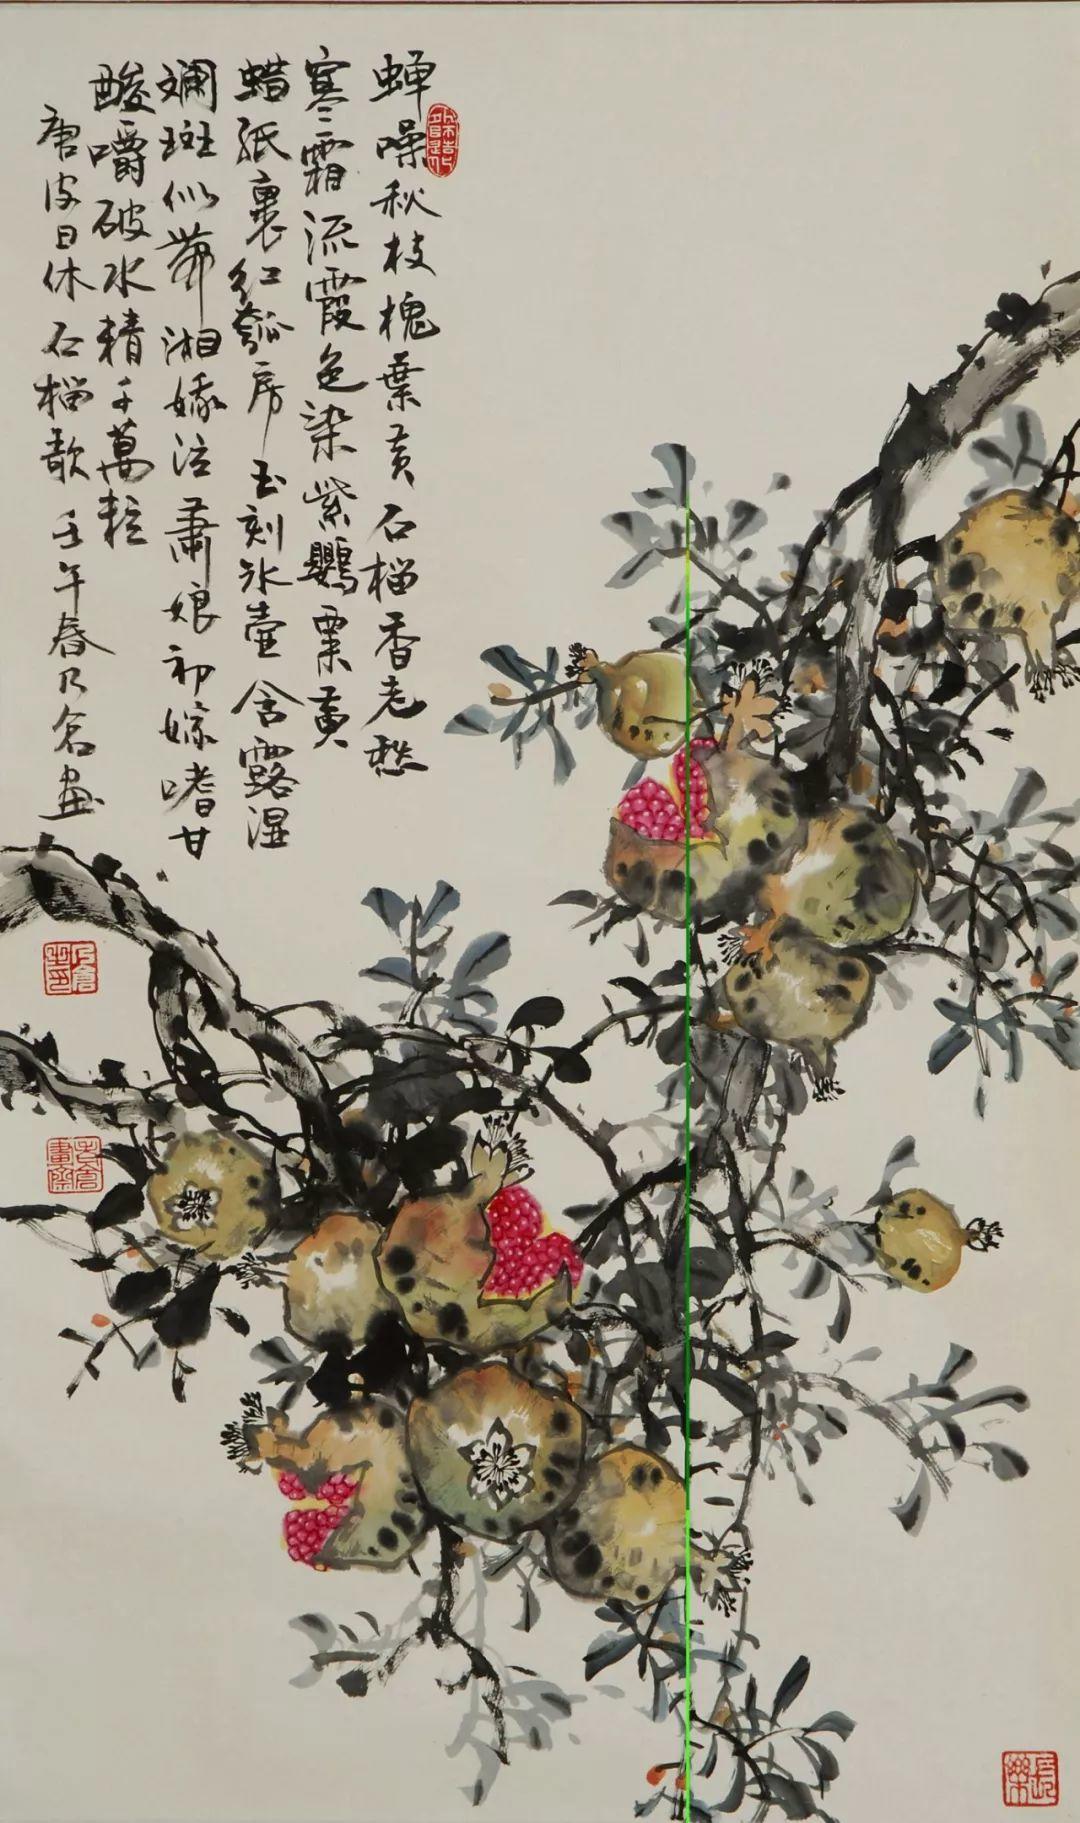 蝉噪秋枝槐葉黄石榴香老愁
寒霜流霞色染紫鸚粟黄
蜡紙裹红瓠房玉刻冰壺含露湿
斓斑似帶湘娥泣蕭娘初嫁嗜甘
酸嚼破水精千萬粒
唐皮日休石榴歌壬午春乃名畫